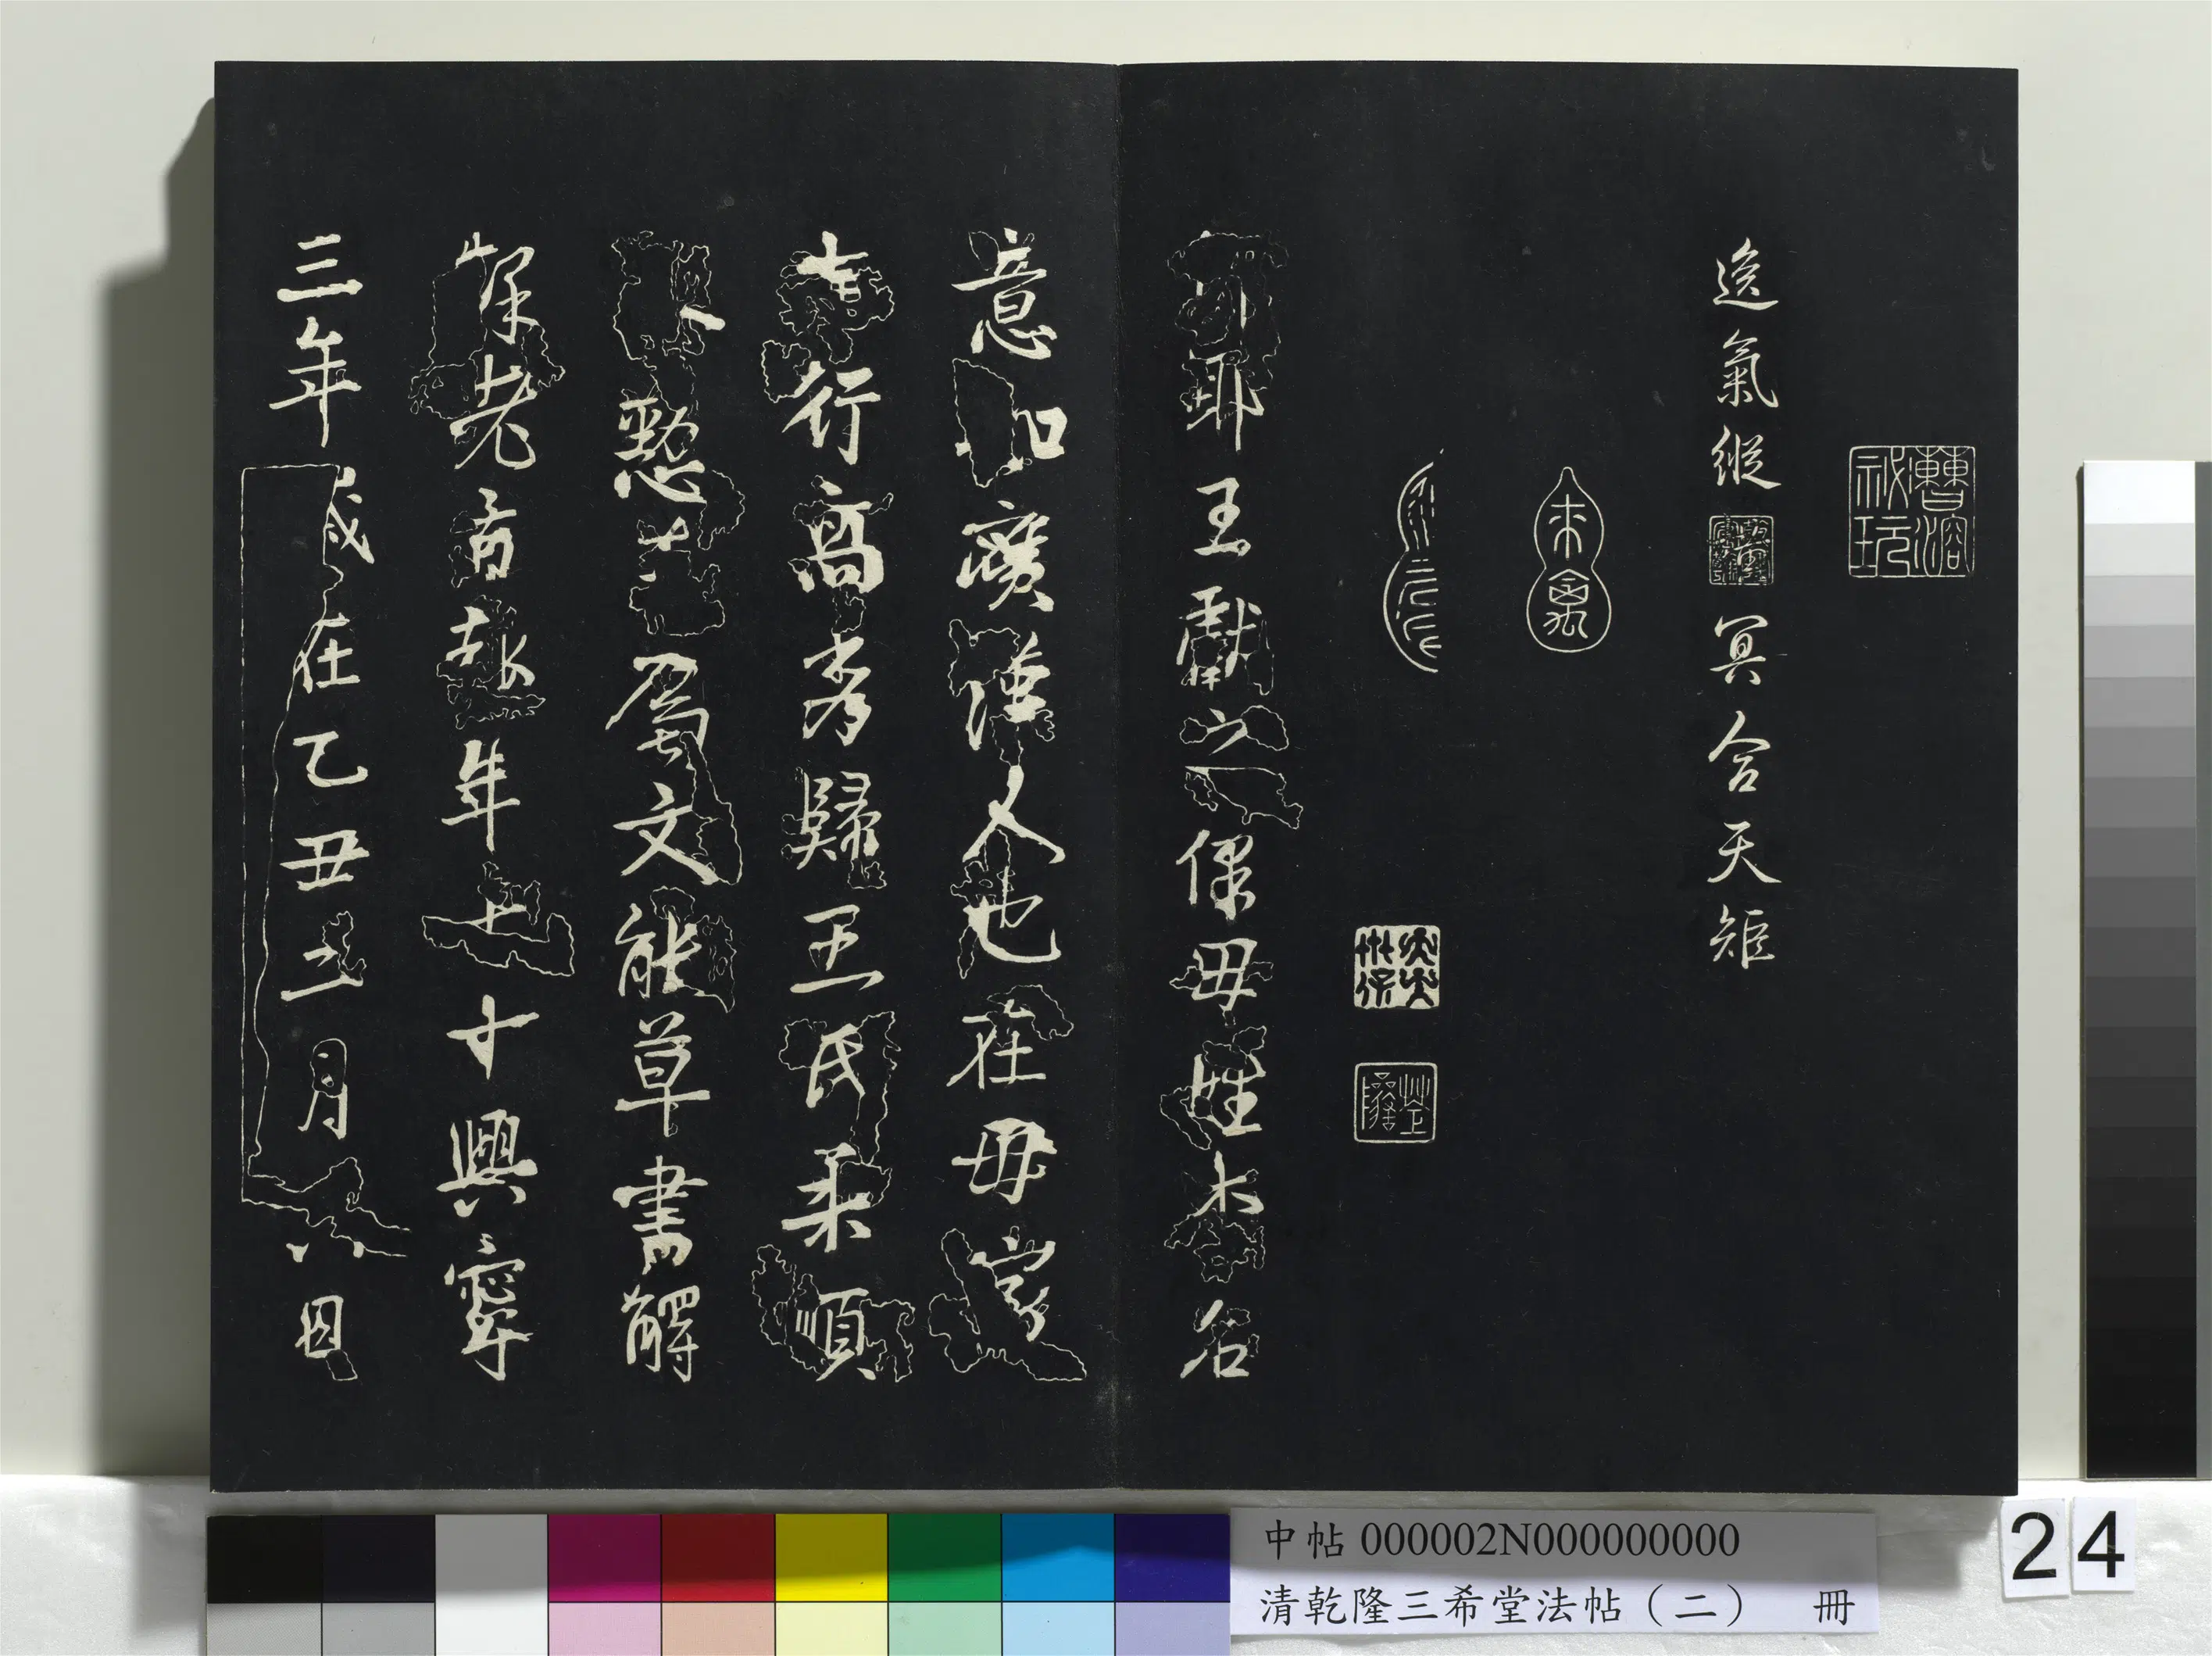 逸氣縱冥合天矩
琅耶王獻之保母姓李名
意如廣漢人也在母家
志行高秀歸王氏柔順
恭懃善屬文能草書解
釋老旨趣年七十興寧
三年歲在乙丑二月六日
中帖 000002N000000000
清乾隆三希堂法帖（二） 冊
24